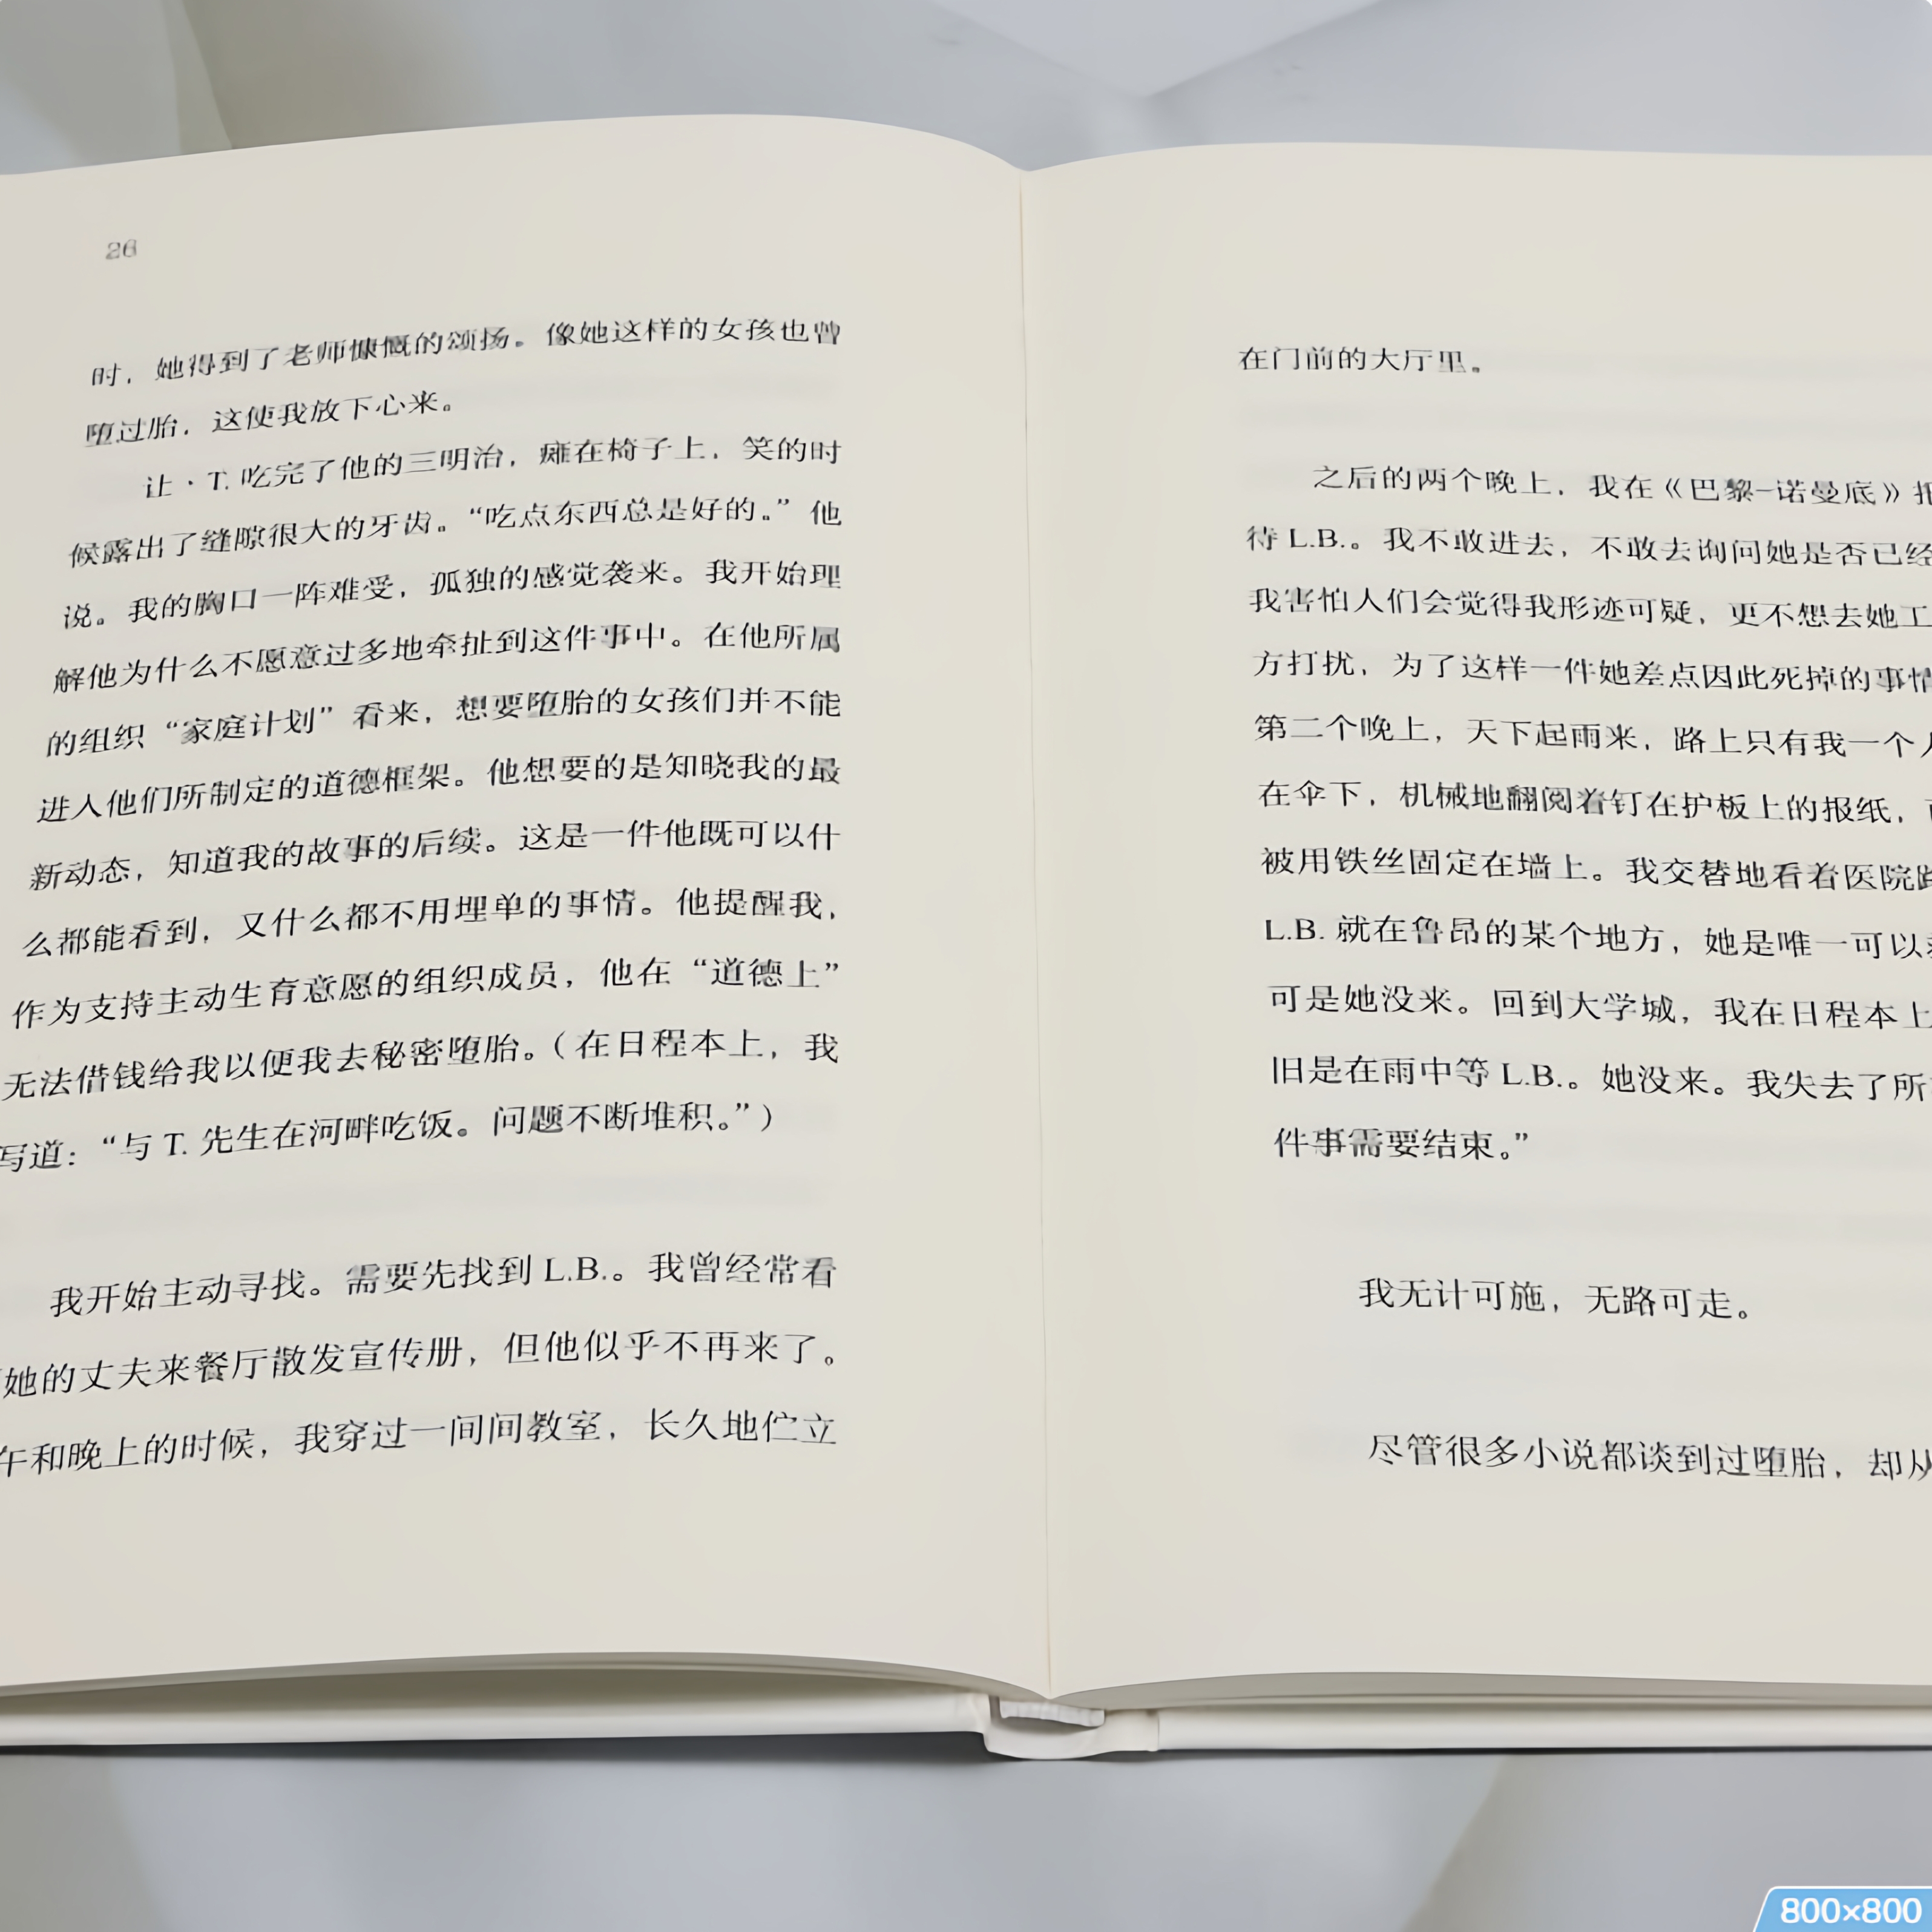 26
时，她得到了老师慷慨的颂扬。像她这样的女孩也曾
堕过胎，这使我放下心来。
让·T. 吃完了他的三明治，瘫在椅子上，笑的时
候露出了缝隙很大的牙齿。“吃点东西总是好的。”他
说。我的胸口一阵难受，孤独的感觉袭来。我开始理
解他为什么不愿意过多地牵扯到这件事中。在他所属
的组织“家庭计划”看来，想要堕胎的女孩们并不能
进入他们所制定的道德框架。他想要的是知晓我的最
新动态，知道我的故事的后续。这是一件他既可以什
么都能看到，又什么都不用埋单的事情。他提醒我，
作为支持主动生育意愿的组织成员，他在“道德上”
无法借钱给我以便我去秘密堕胎。（在日程本上，我
写道：“与 T. 先生在河畔吃饭。问题不断堆积。”）
我开始主动寻找。需要先找到 L.B.。我曾经常看
她的丈夫来餐厅散发宣传册，但他似乎不再来了。
午和晚上的时候，我穿过一间间教室，长久地伫立
在门前的大厅里。
之后的两个晚上，我在《巴黎-诺曼底》
待 L.B.。我不敢进去，不敢去询问她是否已经
我害怕人们会觉得我形迹可疑，更不想去她工
方打扰，为了这样一件她差点因此死掉的事情
第二个晚上，天下起雨来，路上只有我一个
在伞下，机械地翻阅着钉在护板上的报纸，
被用铁丝固定在墙上。我交替地看着医院
L.B. 就在鲁昂的某个地方，她是唯一可以
可是她没来。回到大学城，我在日程本上
旧是在雨中等 L.B.。她没来。我失去了所
件事需要结束。”
我无计可施，无路可走。
尽管很多小说都谈到过堕胎，却从
800×800